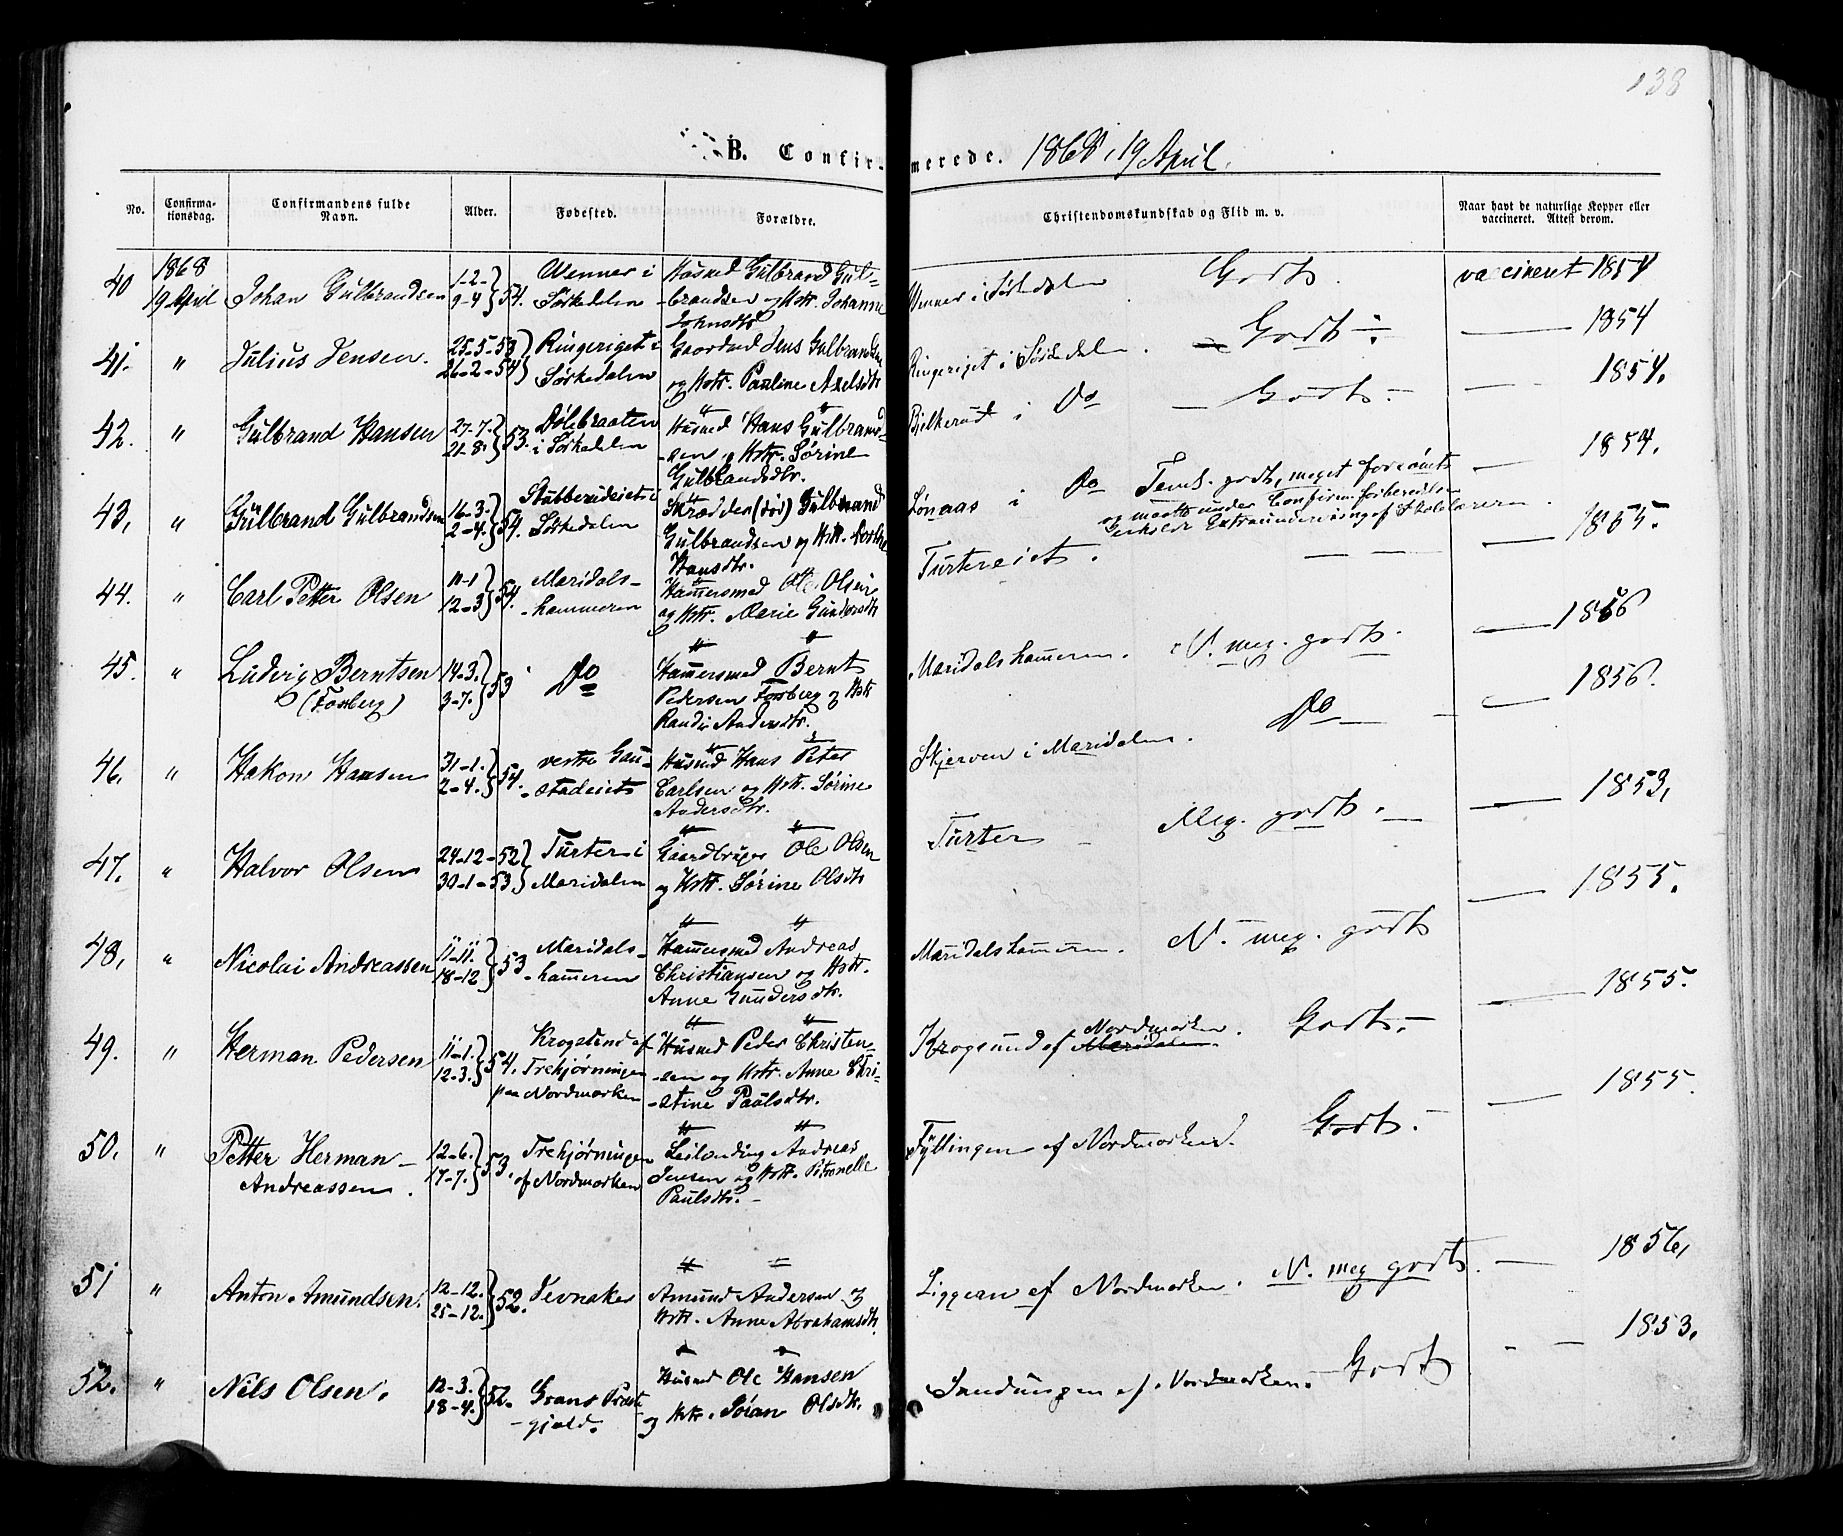 138
B. Confirmerede. 1868, 19 April.
No. Confirmationsdag. Confirmandens fulde Navn. Alder. Fødested. Forældre. Christendomskundskab og Flid m. v. Naar havt de naturlige Kopper eller vaccineret. Attest derom.
40 1868 19 April Johan Gulbrandsen 1-2- 9-4 } 54. Wenner i Sørkedalen Husmd Gulbrand Gul-
brandsen og Hstr. Johanne
Johnsdtr
Wenner i Sørkedalen Godt. vaccineret 1854
41. " Julius Jensen. 25-5-53 26-2-54 } Ringeriget i Sørkedalen Gaardmd Jens Gulbrandsen
og Hstr. Pauline Axelsdtr
Ringeriget i Sørkedalen. — Godt — — 1854
42. " Gulbrand Hansen 27-7. 21-8. } 53. Dølebraaten i Sørkedalen Husmd Hans Gulbrand-
sen og Hstr. Sørine
Gulbrandsdtr.
i Do — Godt. — — 1854.
43, " Gulbrand Gulbrandsen 16-3. 2-4. } 54. Stubberudeiet i Sørkedalen Skrædder (død) Gulbrand
Gulbrandsen og Hstr.
Hansdtr.
Lønaas i Do Teml. godt, meget forsømt
og maatte under Confirm. forberedelsen
Extraundervisning af Skolelæreren.
— 1854.
44. " Carl Petter Olsen 11-1 12-3 } 54. Maridals-
hammeren Hammersmed Ole Olsen
og Hstr. Marie Gundersdtr
Turtereiet. — — — 1855.
45. " Ludvig Berntsen
(Fosberg) 14-3. 3-7. } 53 Do Hammersmed Bernt
Pedersen Fosberg og Hstr
Randi Andersdtr.
Maridalshammeren. N. meg. godt. — 1856
46. " Hakon Hansen 31-1. 2-4. } 54. vestre Gau-
stadeiet Husmd Hans Peter
Carlsen og Hstr. Sørine
Andersdtr.
Skjerven i Maridalen. Do — — 1856.
47. " Halvor Olsen 24-12-52 30-1-53 } Turter i
Maridalen Gaardbruger Ole Olsen
og Hstr. Sørine Olsdtr
Turter — Meg. godt. — — 1853,
48, " Nicolai Andreassen 11-11. 18-12 } 53 Maridals-
hammeren Hammersmed Andreas
Christiansen og Hstr.
Anne Gundersdtr.
Maridalshammeren. N. meg. godt — 1855.
49. " Herman Pedersen 11-1. 12-3. } 54. af
Trehjørningen
paa Nordmarken Husmd Peder Christen-
sen og Hstr. Anne Chri-
stine Paulsdtr.
Krogsund af Maridalen Nordmarken. Godt. — — 1855.
50. " Petter Herman
Andreassen. 12-6. 17-7. } 53. Trehjørningen
af Nordmarken Leilænding Andreas
Jensen og Hstr. Petronelle
Paulsdtr. —
Fyllingen af Nordmarken. Godt. — — 1855.
51 " Anton Amundsen. 12-12. 25-12. } 52. Jevnaker Amund Andersen og
Hstr. Anne Abrahamsdtr.
Liggeren af Nordmarken. N. meg godt. — 1856,
52. " Nils Olsen. 12-3. 18-4. } 52. Grans Præste-
gjeld. Husmd Ole Hansen
og Hstr. Olsdtr.
Sandungen af Nordmarken. Godt — 1853,